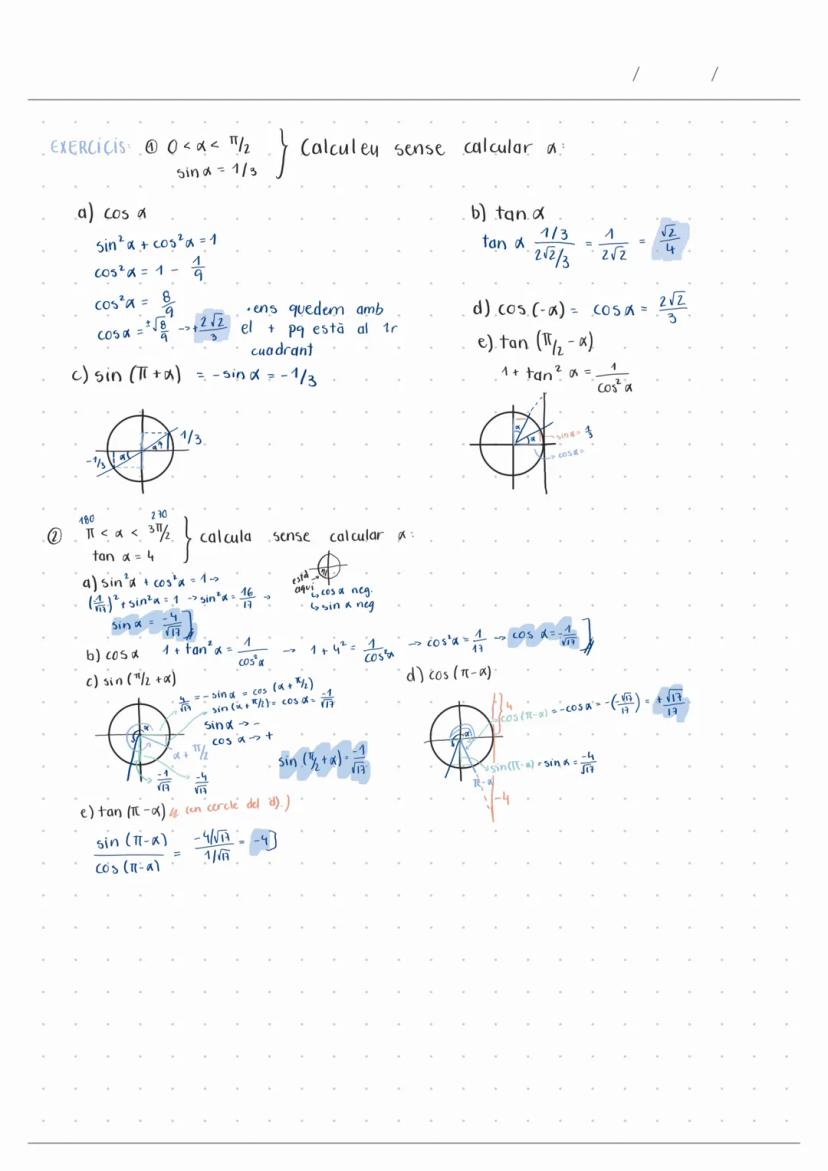 / /
EXERCICIS: ① 0 < α < π/2 } Calculeu sense calcular α:
sin α = 1/3
a) cos α
sin²α + cos²α = 1
cos²α = 1 - 1/9
cos²α = 8/9
cos α = ±√8/9 → +2√2/3
· ens quedem amb
el + pq està al 1r
cuadrant
b) tan α
tan α 1/3 / 2√2/3 = 1/2√2 = √2/4
c) sin (π + α) = - sin α = -1/3
1/3
-1/3
α
α
d) cos (-α) = cos α = 2√2/3
e) tan (π/2 - α)
1 + tan² α = 1/cos²α
α
α
sin α = 1/3
→ cos α =
② 180 270
π < α < 3π/2 } calcula sense calcular α:
tan α = 4
a) sin²α + cos²α = 1 →
(1/√17)² + sin²α = 1 → sin²α = 16/17 →
sin α = -4/√17
està
aquí
↳ cos α neg.
↳ sin α neg
b) cos α 1 + tan²α = 1/cos²α → 1 + 4² = 1/cos²α → cos²α = 1/17 → cos α = -1/√17
c) sin (π/2 + α)
4/√17 = - sin α = cos (α + π/2)
sin (α + π/2) = cos α = -1/√17
sin α → -
cos α → +
α + π/2
-1/√17
-4/√17
sin (π/2 + α) = -1/√17
d) cos (π - α)
4
cos (π - α) = - cos α = -(-√17/17) = +√17/17
sin (π - α) = sin α = -4/√17
π - α
-4
e) tan (π - α) (en cercle del d).)
sin (π - α) / cos (π - α) = -4/√17 / 1/√17 = -4